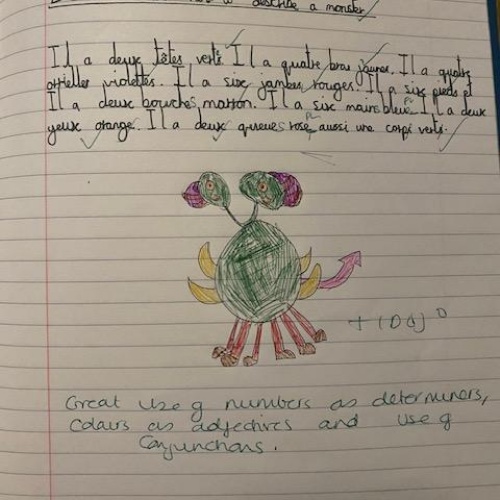 to describe a monster
Il a deux têtes verts. Il a quatre bras jaunes. Il a quatre
orielles violettes. Il a six jambes rouges. Il a six pieds et
Il a deux bouches marron. Il a six mains bleue. Il a deux
yeux orange. Il a deux queues rose aussi une corps verts.
Great use of numbers as determiners,
Colours as adjectives and use of
Conjunctions.